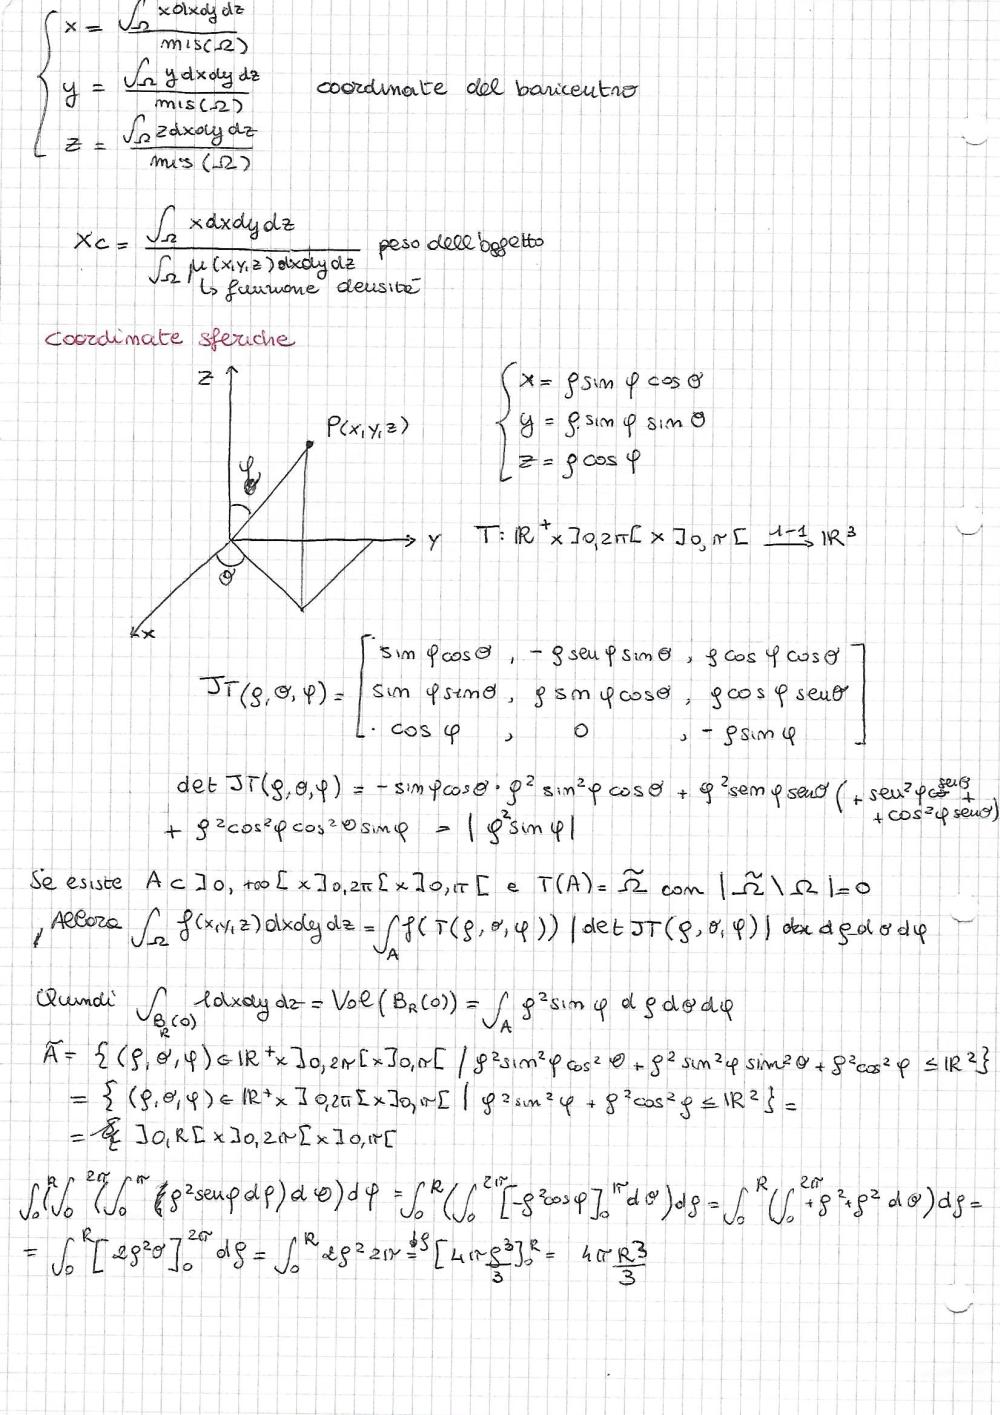 x = ∫Ω xdxdydz / mis(Ω)
y = ∫Ω ydxdydz / mis(Ω) coordinate del baricentro
z = ∫Ω zdxdydz / mis(Ω)
Xc = ∫Ω xdxdydz / ∫Ω μ(x,y,z)dxdydz peso dell'oggetto
↳ funzione densità
coordinate sferiche
Z
P(x,y,z)
φ
y
θ
x
x = ρ sin φ cos θ
y = ρ sin φ sin θ
z = ρ cos φ
T: ℝ⁺ x ]0,2π[ x ]0,π[ 1-1→ ℝ³
JT(ρ,θ,φ) = [ sin φ cos θ , - ρ sen φ sin θ , ρ cos φ cos θ
sin φ sin θ , ρ sin φ cos θ , ρ cos φ sen θ
cos φ , 0 , - ρ sin φ ]
det JT(ρ,θ,φ) = - sin φ cos θ · ρ² sin² φ cos θ + ρ² sen φ sen θ (+ sen² φ sen θ +
+ cos² φ sen θ)
+ ρ² cos² φ cos² θ sin φ = | ρ² sin φ |
Se esiste A ⊂ ]0, +∞[ x ]0,2π[ x ]0,π[ e T(A) = Ω̃ con | Ω̃ \ Ω | = 0
, Allora ∫Ω f(x,y,z)dxdydz = ∫A f(T(ρ,θ,φ)) | det JT(ρ,θ,φ) | dρ dθ dφ
Quindi ∫B_R(0) 1dxdydz = Vol(B_R(0)) = ∫A ρ² sin φ dρ dθ dφ
Ã = { (ρ,θ,φ) ∈ ℝ⁺ x ]0,2π[ x ]0,π[ / ρ² sin² φ cos² θ + ρ² sin² φ sin² θ + ρ² cos² φ ≤ ℝ² }
= { (ρ,θ,φ) ∈ ℝ⁺ x ]0,2π[ x ]0,π[ | ρ² sin² φ + ρ² cos² ρ ≤ ℝ² } =
= ]0,R[ x ]0,2π[ x ]0,π[
∫₀^R (∫₀^2π (∫₀^π (ρ² sen φ dρ) dθ) dφ = ∫₀^R (∫₀^2π [-ρ² cos φ]₀^π dθ) dρ = ∫₀^R (∫₀^2π +ρ² + ρ² dθ) dρ =
= ∫₀^R [2ρ²θ]₀^2π dρ = ∫₀^R 2ρ² 2π dρ = [4π ρ³/3]₀^R = 4π R³/3